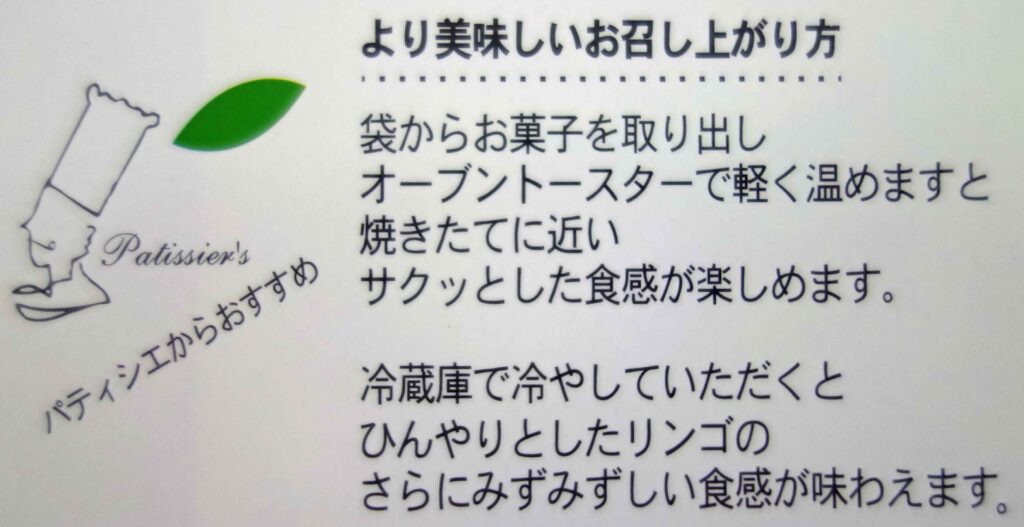 より美味しいお召し上がり方
袋からお菓子を取り出し
オーブントースターで軽く温めますと
焼きたてに近い
サクッとした食感が楽しめます。
冷蔵庫で冷やしていただくと
ひんやりとしたリンゴの
さらにみずみずしい食感が味わえます。
Patissier's
パティシエからおすすめ